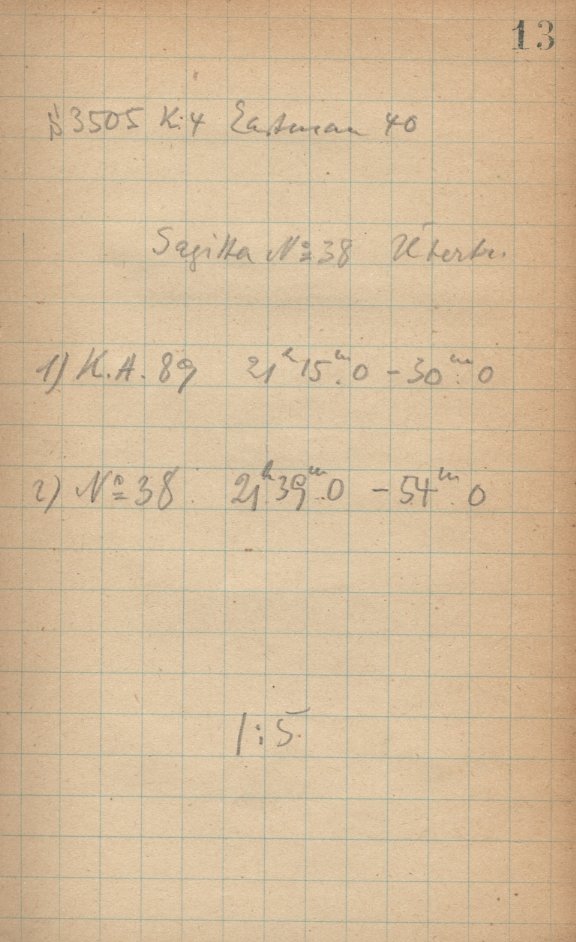 13
3505 K.4 Eastman 40
Sagitta № 38
1) K.A. 89 21ʰ15ᵐ.0 – 30ᵐ.0
2) № 38. 21ʰ39ᵐ.0 – 54ᵐ.0
1:5